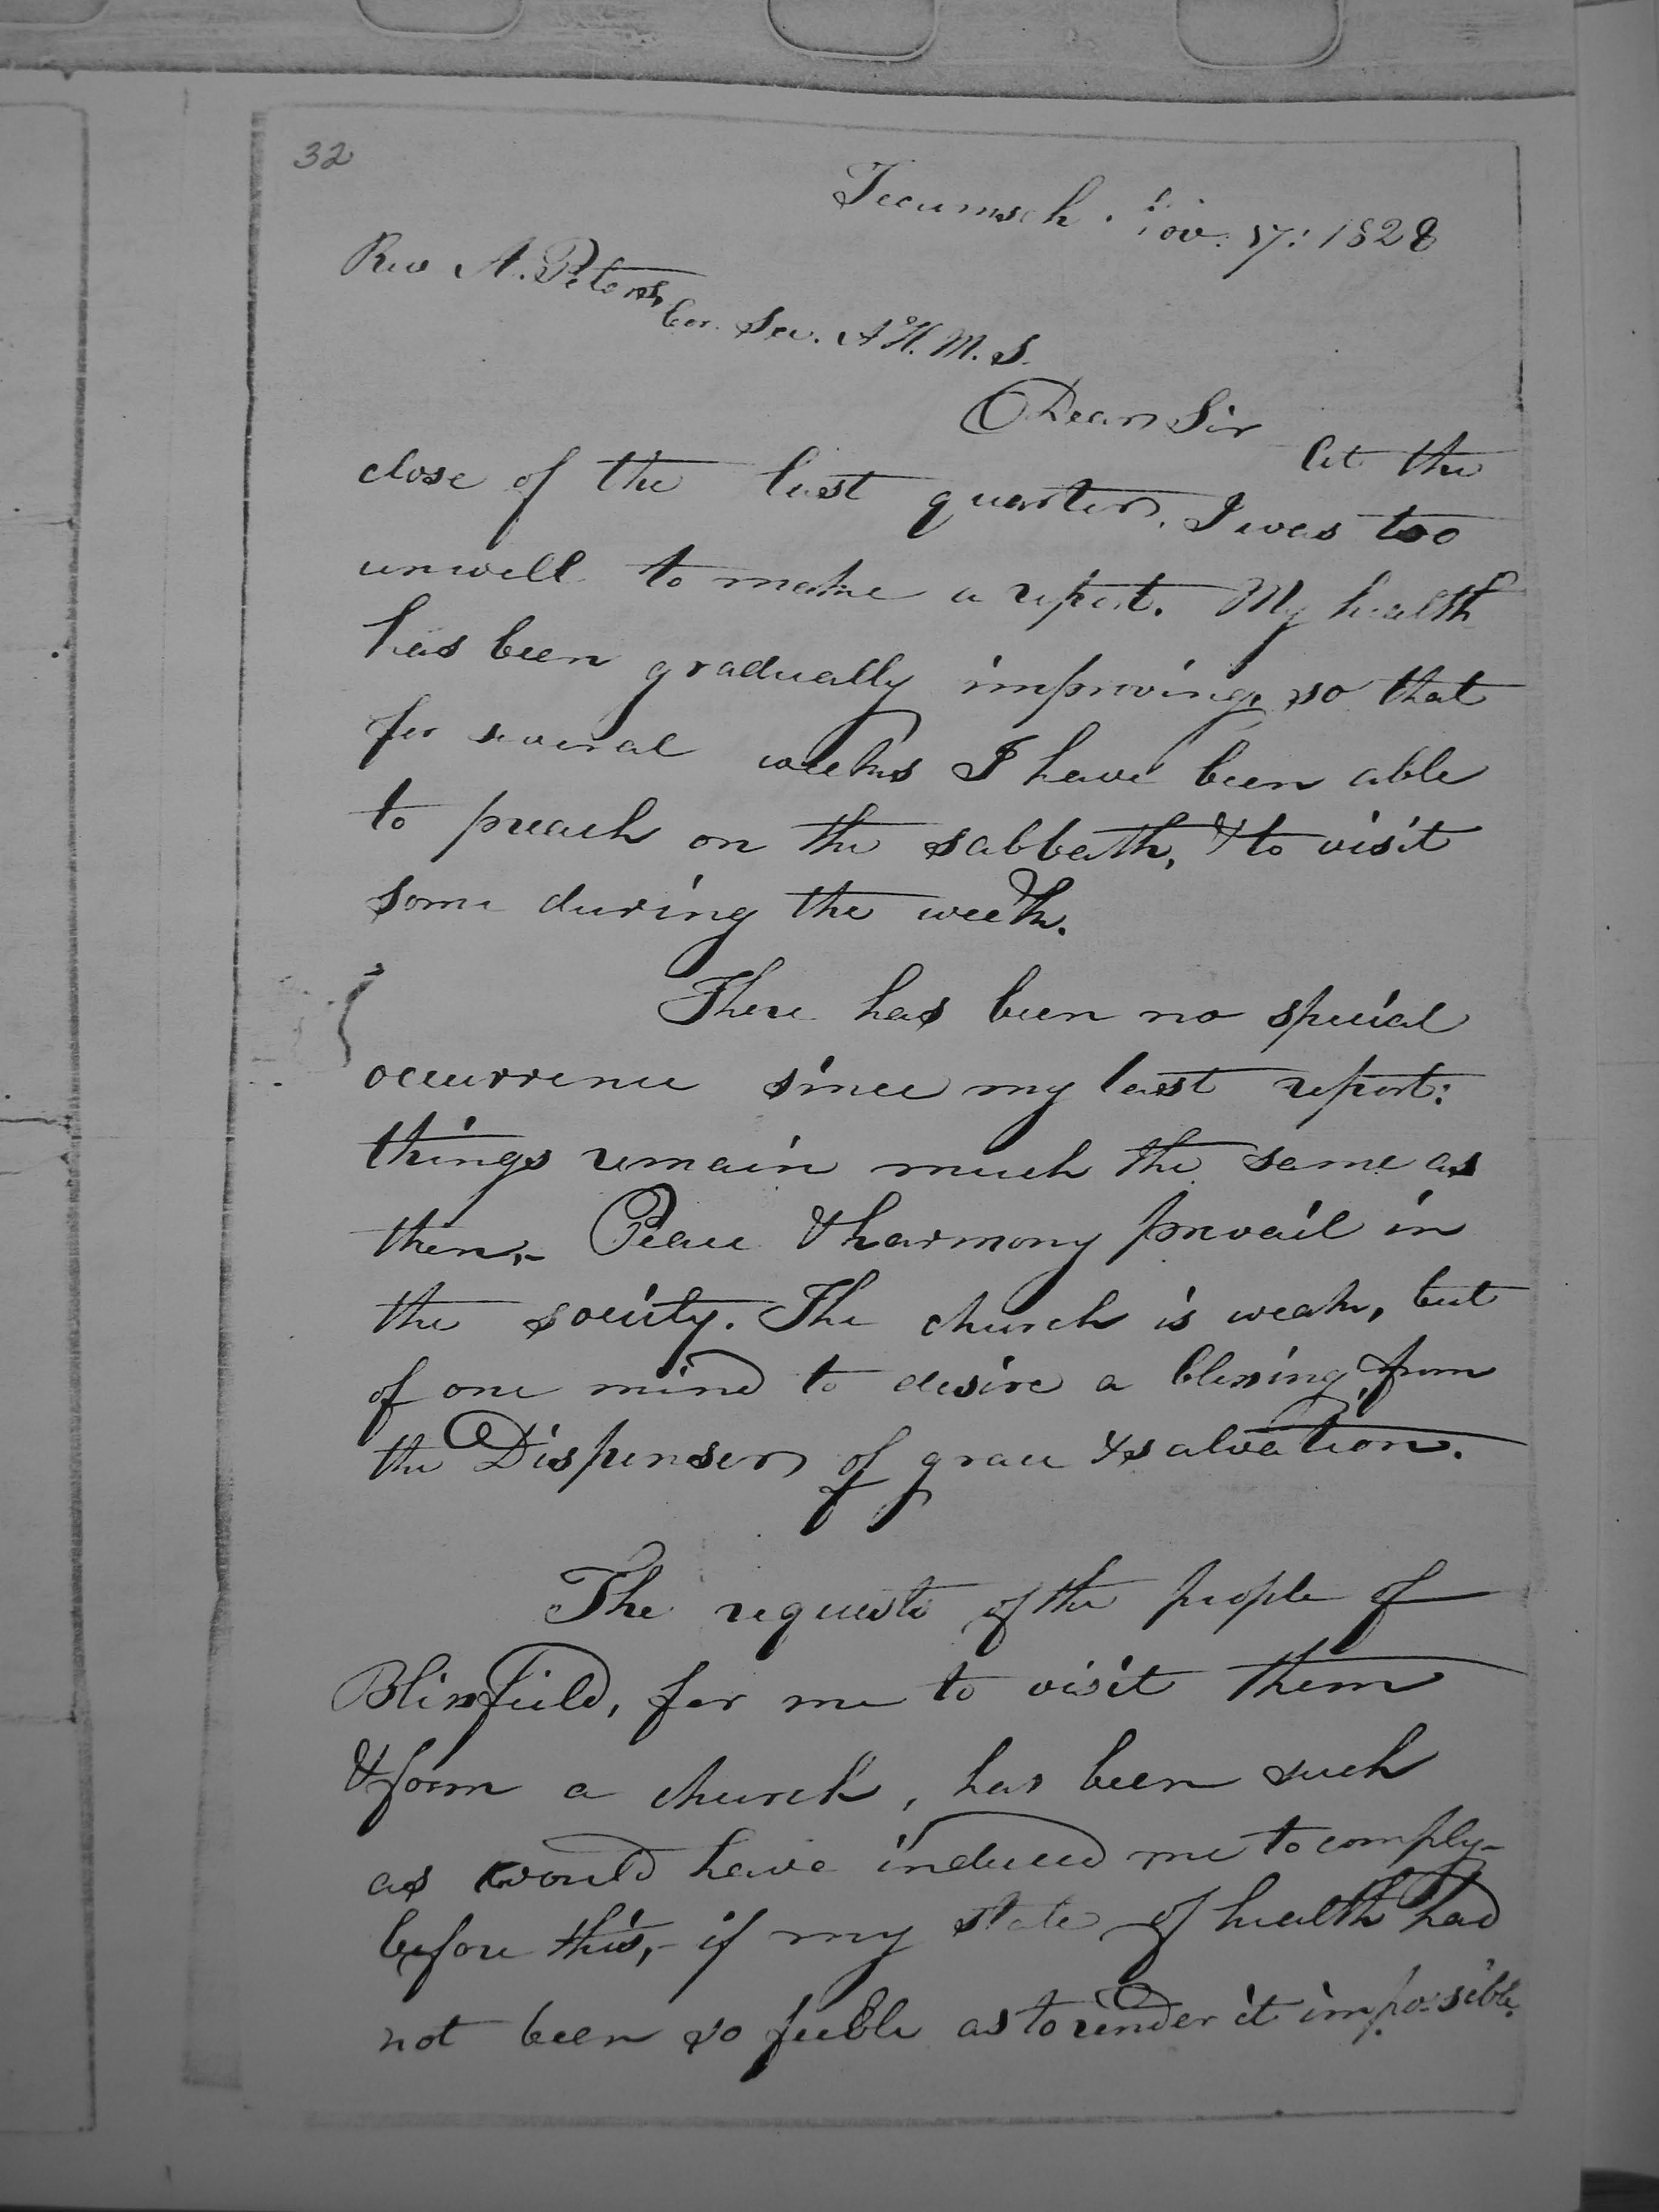 32
Tecumseh. Nov. 17: 1828
Rev A. Peters,
Cor. Sec. A. H. M. S.
Dear Sir At the
close of the last quarter, I was too
unwell to make a report. My health
has been gradually improving, so that
for several weeks I have been able
to preach on the sabbath, & to visit
some during the week.
There has been no special
occurrence since my last report:
things remain much the same as
then,- Peace & harmony prevail in
the society. The church is weak, but
of one mind to desire a blessing from
the Dispenser of grace & salvation.
The requests of the people of
Blissfield, for me to visit them
& form a church, has been such
as would have induced me to comply-
before this,- if my state of health had
not been so feeble as to render it impossible.